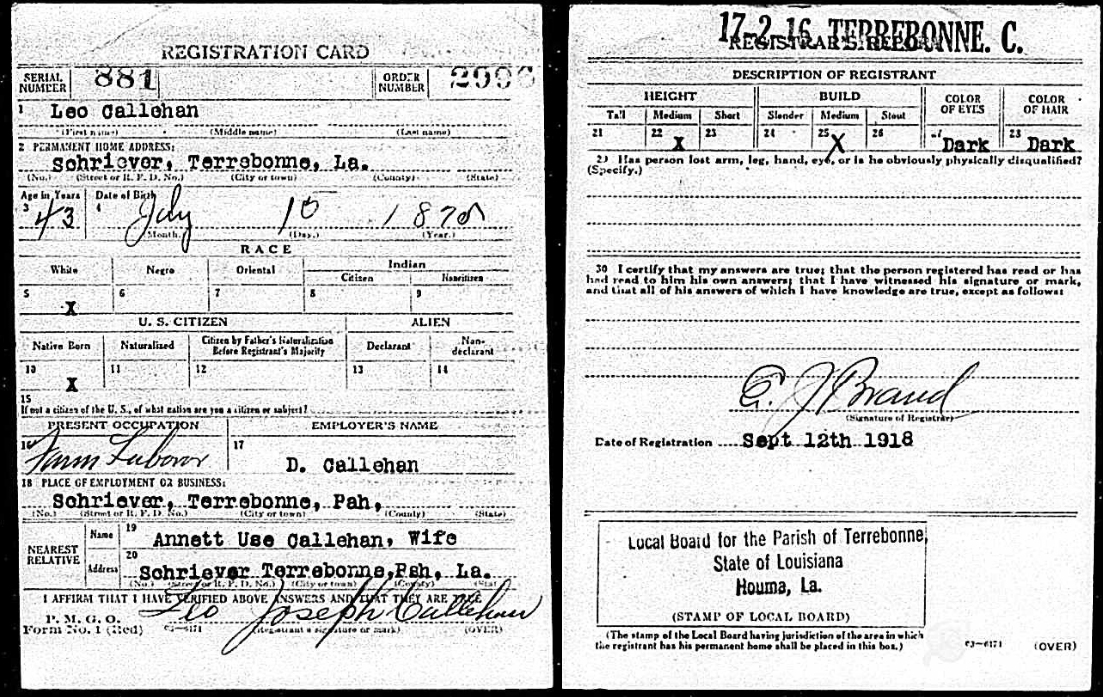 REGISTRATION CARD
SERIAL NUMBER 881 ORDER NUMBER
1 Leo Callehan
(First name) (Middle name) (Last name)
2 PERMANENT HOME ADDRESS:
Schriever, Terrebonne, La.
(No.) (Street or R. F. D. No.) (City or town) (County) (State)
Age in Years Date of Birth
3 43 4 July 15 1875
(Month.) (Day.) (Year.)
RACE
White Negro Oriental Indian
Citizen Noncitizen
5 6 7 8 9
X
U. S. CITIZEN ALIEN
Native Born Naturalized Citizen by Father's Naturalization Before Registrant's Majority Declarant Non-declarant
10 11 12 13 14
X
15
If not a citizen of the U. S., of what nation are you a citizen or subject?
PRESENT OCCUPATION EMPLOYER'S NAME
16 Farm Laboror 17 D. Callehan
18 PLACE OF EMPLOYMENT OR BUSINESS:
Schriever, Terrebonne, Pah,
(No.) (Street or R. F. D. No.) (City or town) (County) (State)
NEAREST RELATIVE Name 19 Annett Use Callehan, Wife
Address 20 Schriever Terrebonne,Pah, La.
(No.) (Street or R. F. D. No.) (City or town) (County) (State)
I AFFIRM THAT I HAVE VERIFIED ABOVE ANSWERS AND THAT THEY ARE TRUE
P. M. G. O.
Form No. 1 (Red) 03—6171 Leo Joseph Callehan
(Registrant's signature or mark) (OVER)
17-2-16 TERREBONNE. C.
REGISTRAR'S REPORT
DESCRIPTION OF REGISTRANT
HEIGHT BUILD COLOR OF EYES COLOR OF HAIR
Tall Medium Short Slender Medium Stout
21 22 X 23 24 25 X 26 27 Dark 28 Dark
29 Has person lost arm, leg, hand, eye, or is he obviously physically disqualified?
(Specify.)
30 I certify that my answers are true; that the person registered has read or has
had read to him his own answers; that I have witnessed his signature or mark,
and that all of his answers of which I have knowledge are true, except as follows:
J Brand
(Signature of Registrar)
Date of Registration Sept 12th 1918
Local Board for the Parish of Terrebonne,
State of Louisiana
Houma, La.
(STAMP OF LOCAL BOARD)
(The stamp of the Local Board having jurisdiction of the area in which
the registrant has his permanent home shall be placed in this box.)
03—6171 (OVER)